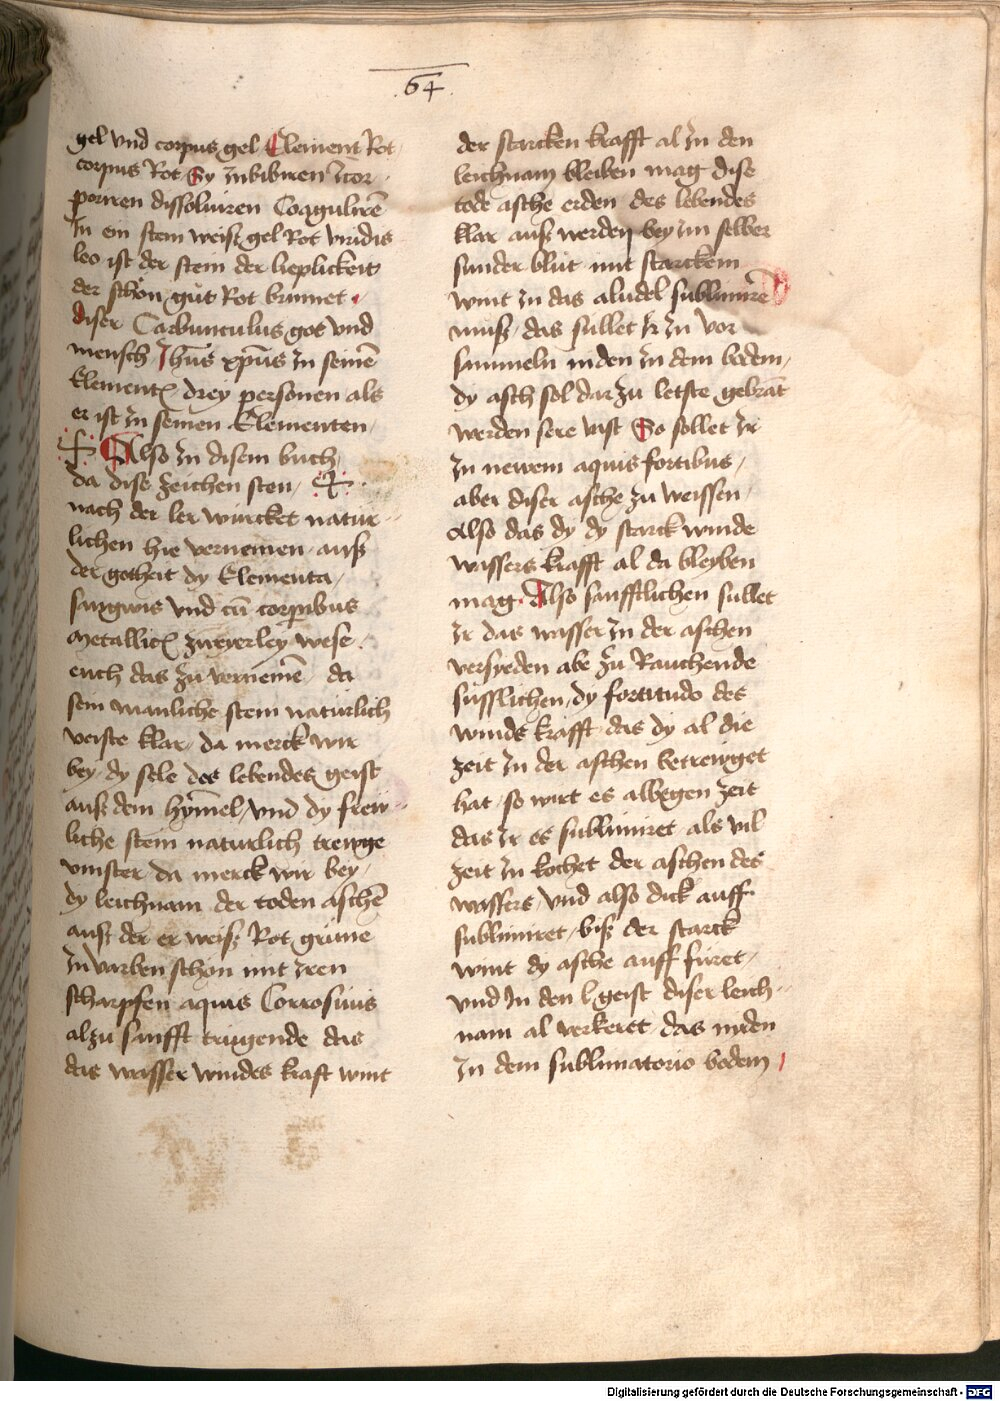 64
gel vnd corpus gel Element Rot
corpus Rot Sy Inbibiren Icor
poriren dissoluiren Coagulirē
In ein stein weiß gel Rot viridis
leo ist der stein der lieplickeit
der schön gut Rot brinnet
diser Carbunculus got vnd
mensch Jhūs xp̄us In seinē
Element drey personen als
er ist In seinen Elementen
Also In disem buch
da dise zeichen sten
nach der ler wurcket natur
lichen hie vernemen auß
der gotheit dy Elementa
sangwis vnd cū corporibus
Metallic zweyerley wese
euch das zu vernemē da
sein manliche stein naturlich
veiste klar da merck wir
bey dy sele des lebendes geist
auß dem hymel vnd dy frew
liche stein naturlich trewge
vinster da merck wir bey
dy leichnam der toden aschē
auß der er weiß Rot grüne
In varben schon mit Iren
scharpfen aquis Corrosiuis
alzu sanfft trugende das
das wasser windes kraft wint
der starcken krafft al In den
leichnam bleiben mag dise
tode asche erden des lebendes
klar auß werden bey im selber
sunder blut mit starckem
wint In das aludel sublimirē
muß das sullet Ir In vor
sammeln niden In dem bodem
dy asch sol dar zu letste gebrāt
werden sere vast So sollet Ir
In newem aquis fortibus
aber diser asche zu weissen
Also das dy dy starck winde
wassers krafft al da bleyben
mag Also sanfftlichen sullet
Ir das wasser In der aschen
versyeden abe zu Rauchende
susslichen dy fortitudo des
winds krafft das dy al die
zeit In der aschen betreuget
hat so wirt es albegen zeit
das Ir es sublimiret als vil
zeit In kochet der aschen des
wassers vnd also dick auff
sublimiret biß der starck
wint dy asche auff füret
vnd In den l geist diser leich
nam al verkeret das niden
In dem sublimatorio bodem
Digitalisierung gefördert durch die Deutsche Forschungsgemeinschaft - DFG